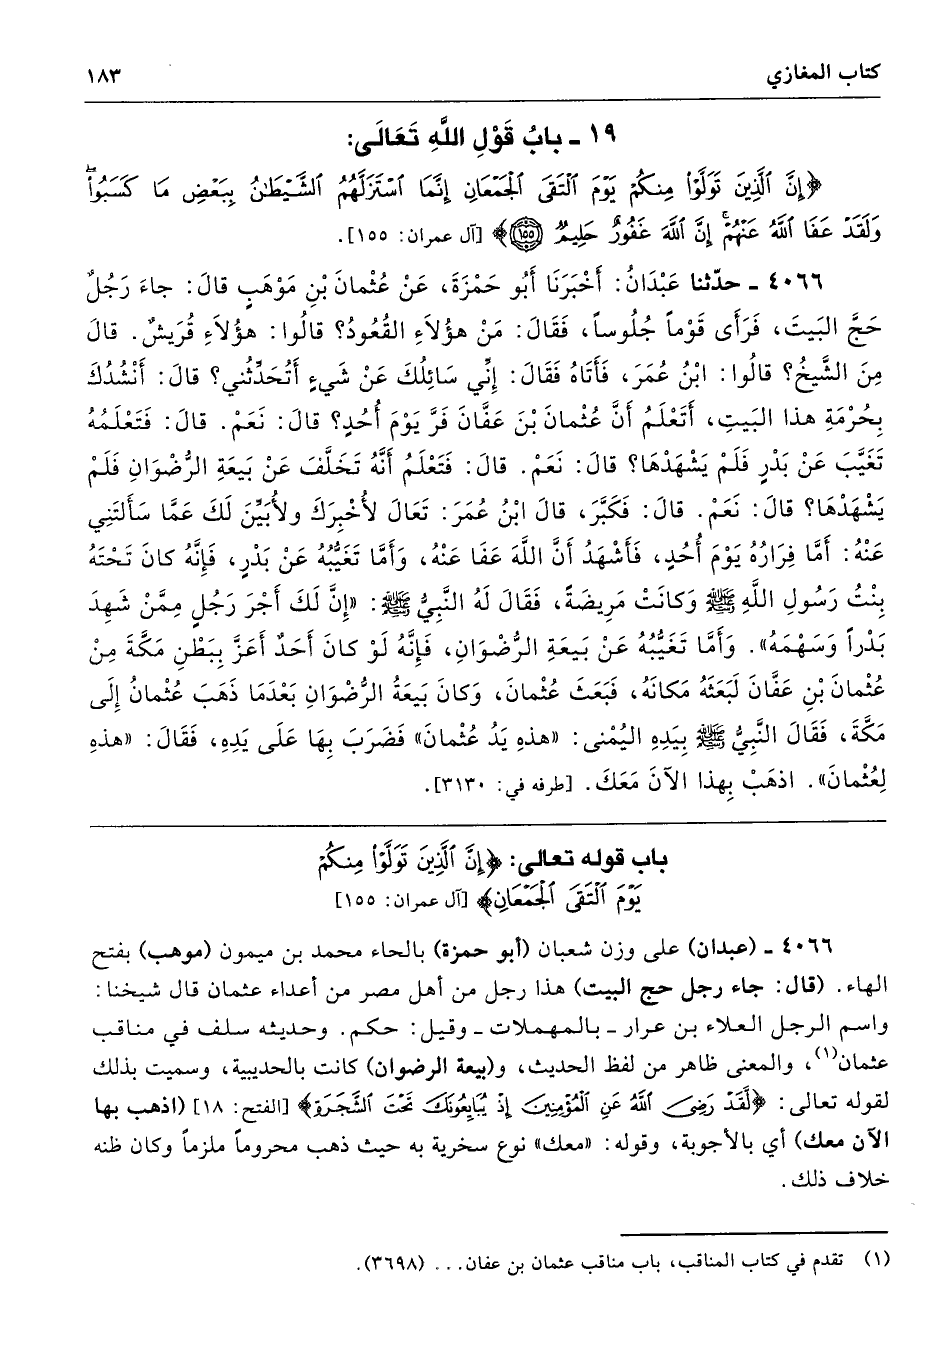 كتاب المغازي ١٨٣
١٩ ـ بابُ قَوْلِ اللَّهِ تَعَالَى:
﴿إِنَّ الَّذِينَ تَوَلَّوْا مِنكُمْ يَوْمَ الْتَقَى الْجَمْعَانِ إِنَّمَا اسْتَزَلَّهُمُ الشَّيْطَانُ بِبَعْضِ مَا كَسَبُوا
وَلَقَدْ عَفَا اللَّهُ عَنْهُمْ إِنَّ اللَّهَ غَفُورٌ حَلِيمٌ ١٥٥﴾ [آل عمران: ١٥٥].
٤٠٦٦ ـ حدّثنا عَبْدَانُ: أَخْبَرَنَا أَبُو حَمْزَةَ، عَنْ عُثْمانَ بْنِ مَوْهَبٍ قالَ: جاءَ رَجُلٌ
حَجَّ البَيتَ، فَرَأَى قَوْماً جُلُوساً، فَقَالَ: مَنْ هؤُلاَءِ القُعُودُ؟ قالُوا: هؤُلاَءِ قُرَيشٌ. قالَ
مِنَ الشَّيخُ؟ قالُوا: ابْنُ عُمَرَ، فَأَتَاهُ فَقَالَ: إِنِّي سَائِلُكَ عَنْ شَيءٍ أَتُحَدِّثُني؟ قالَ: أَنْشُدُكَ
بِحُرْمَةِ هذا البَيتِ، أَتَعْلَمُ أَنَّ عُثْمانَ بْنَ عَفَّانَ فَرَّ يَوْمَ أُحُدٍ؟ قالَ: نَعَمْ. قالَ: فَتَعْلَمُهُ
تَغَيَّبَ عَنْ بَدْرٍ فَلَمْ يَشْهَدْهَا؟ قالَ: نَعَمْ. قالَ: فَتَعْلَمُ أَنَّهُ تَخَلَّفَ عَنْ بَيعَةِ الرُّضْوَانِ فَلَمْ
يَشْهَدْهَا؟ قالَ: نَعَمْ. قالَ: فَكَبَّرَ، قالَ ابْنُ عُمَرَ: تَعَالَ لأُخْبِرَكَ ولأُبَيِّنَ لَكَ عَمَّا سَأَلتَنِي
عَنْهُ: أَمَّا فِرَارُهُ يَوْمَ أُحُدٍ، فَأَشْهَدُ أَنَّ اللَّهَ عَفَا عَنْهُ، وَأَمَّا تَغَيُّبُهُ عَنْ بَدْرٍ، فَإِنَّهُ كانَ تَحْتَهُ
بِنْتُ رَسُولِ اللَّهِ ﷺ وَكانَتْ مَرِيضَةً، فَقَالَ لَهُ النَّبِيُّ ﷺ: «إِنَّ لَكَ أَجْرَ رَجُلٍ مِمَّنْ شَهِدَ
بَدْراً وَسَهْمَهُ». وَأَمَّا تَغَيُّبُهُ عَنْ بَيعَةِ الرُّضْوَانِ، فَإِنَّهُ لَوْ كانَ أَحَدٌ أَعَزَّ بِبَطْنِ مَكَّةَ مِنْ
عُثْمانَ بْنِ عَفَّانَ لَبَعَثَهُ مَكانَهُ، فَبَعَثَ عُثْمانَ، وَكانَ بَيعَةُ الرُّضْوَانِ بَعْدَمَا ذَهَبَ عُثْمانُ إِلَى
مَكَّةَ، فَقَالَ النَّبِيُّ ﷺ بِيَدِهِ اليُمْنى: «هذهِ يَدُ عُثْمانَ» فَضَرَبَ بِهَا عَلَى يَدِهِ، فَقَالَ: «هذهِ
لِعُثْمانَ». اذهَبْ بِهذا الآنَ مَعَكَ. [طرفه في: ٣١٣٠].
باب قوله تعالى: ﴿إِنَّ الَّذِينَ تَوَلَّوْا مِنكُمْ
يَوْمَ الْتَقَى الْجَمْعَانِ﴾ [آل عمران: ١٥٥]
٤٠٦٦ ـ (عبدان) على وزن شعبان (أبو حمزة) بالحاء محمد بن ميمون (موهب) بفتح
الهاء. (قال: جاء رجل حج البيت) هذا رجل من أهل مصر من أعداء عثمان قال شيخنا:
واسم الرجل العلاء بن عرار ـ بالمهملات ـ وقيل: حكم. وحديثه سلف في مناقب
عثمان(١)، والمعنى ظاهر من لفظ الحديث، و(بيعة الرضوان) كانت بالحديبية، وسميت بذلك
لقوله تعالى: ﴿لَّقَدْ رَضِيَ اللَّهُ عَنِ الْمُؤْمِنِينَ إِذْ يُبَايِعُونَكَ تَحْتَ الشَّجَرَةِ﴾ [الفتح: ١٨] (اذهب بها
الآن معك) أي بالأجوبة، وقوله: «معك» نوع سخرية به حيث ذهب محروماً ملزماً وكان ظنه
خلاف ذلك.
(١) تقدم في كتاب المناقب، باب مناقب عثمان بن عفان... (٣٦٩٨).